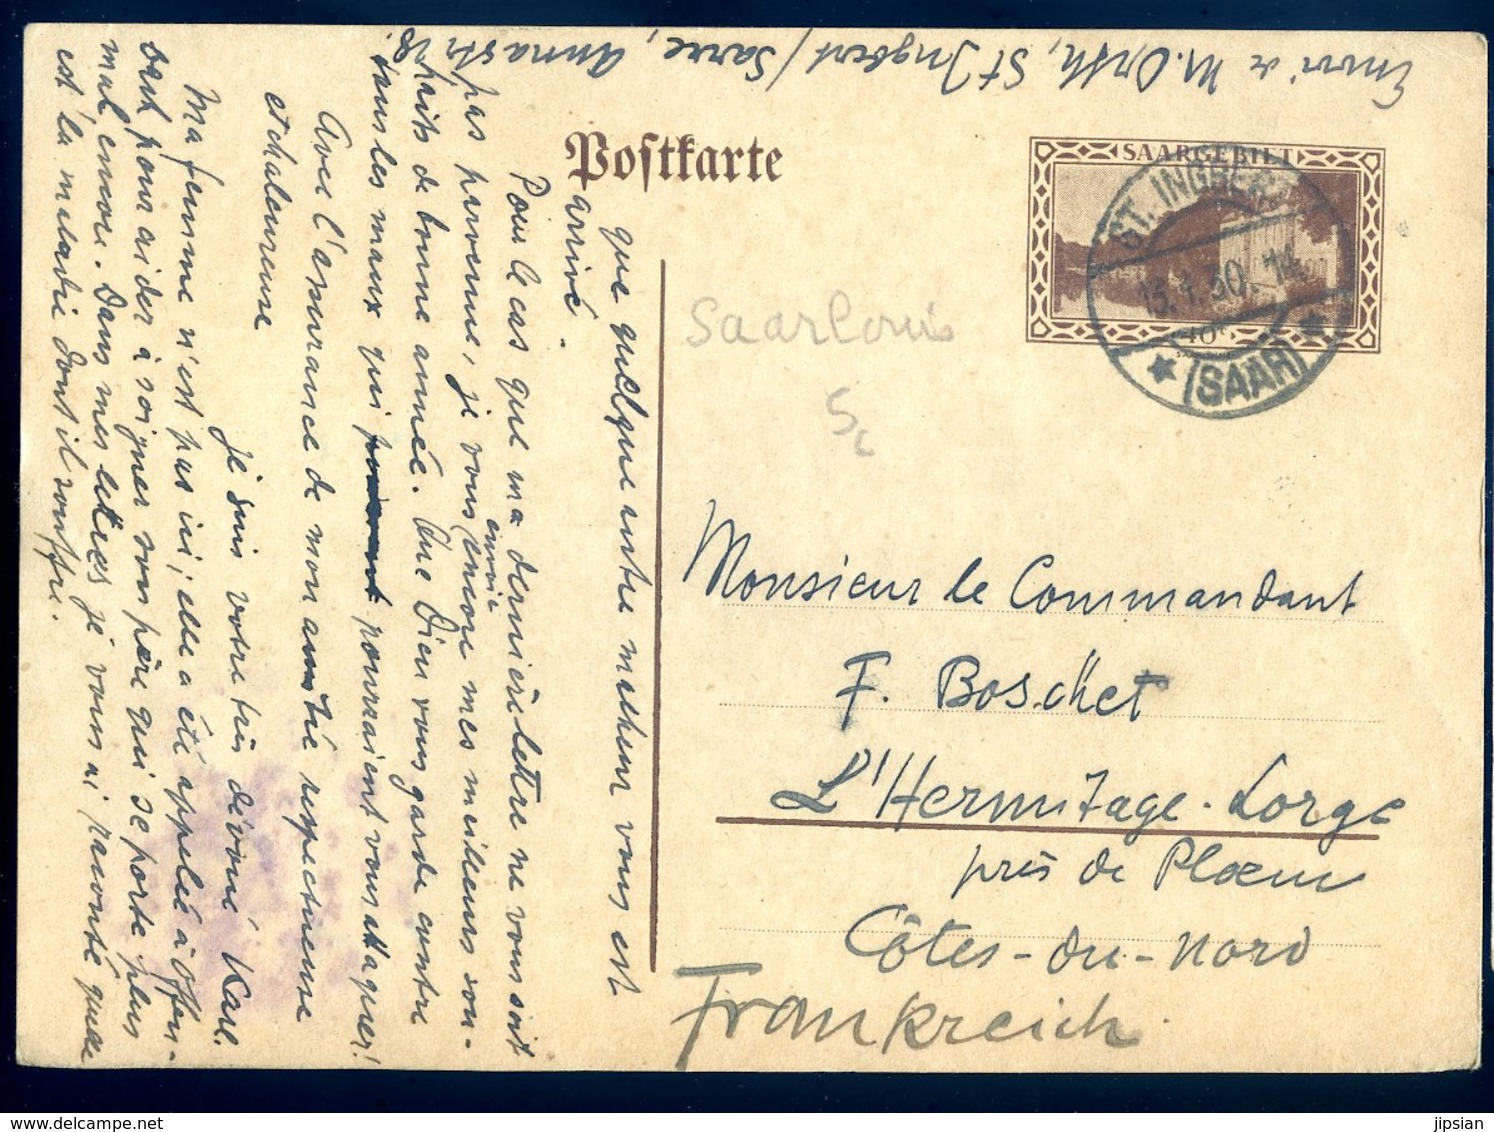 Envoi de M. Orth, St Ingbert / Sarre, Annastr 18.
Postkarte
SAARGEBIET
ST. INGBERT
13.1.30.
40
(SAAR)
Saarlouis
5c
Monsieur le Commandant
F. Boschet
L'Hermitage-Lorge
près de Plœuc
Côtes-du-Nord
Frankreich
que quelque autre malheur vous est
arrivé.
Pour le cas que ma dernière lettre ne vous soit
pas parvenue, je vous envoie encore mes meilleurs sou-
haits de bonne année. Que Dieu vous garde contre
tous les maux qui pourraient vous attaquer!
Avec l'assurance de mon amitié respectueuse
et chaleureuse
je suis votre très dévoué Karl.
Ma femme n'est pas ici; elle a été appelée à Offen-
bach pour aider à soigner son père qui se porte plus
mal encore. Dans mes lettres je vous ai raconté quelle
est la maladie dont il souffre.
jipsian